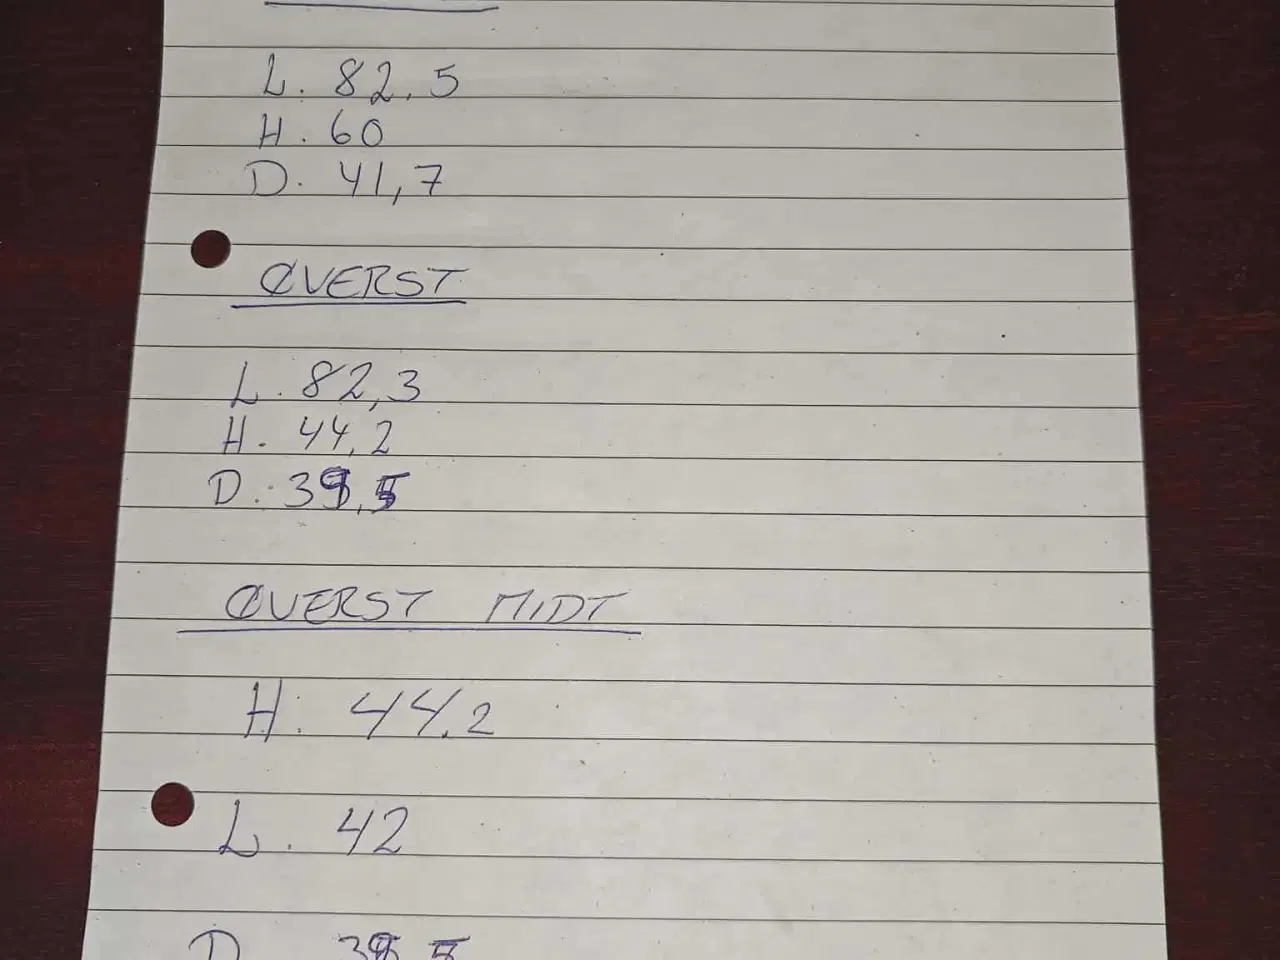 L. 82,5
H. 60
D. 41,7
ØVERST
L. 82,3
H. 44,2
D. 39,5
ØVERST MIDT
H. 44,2
L. 42
D